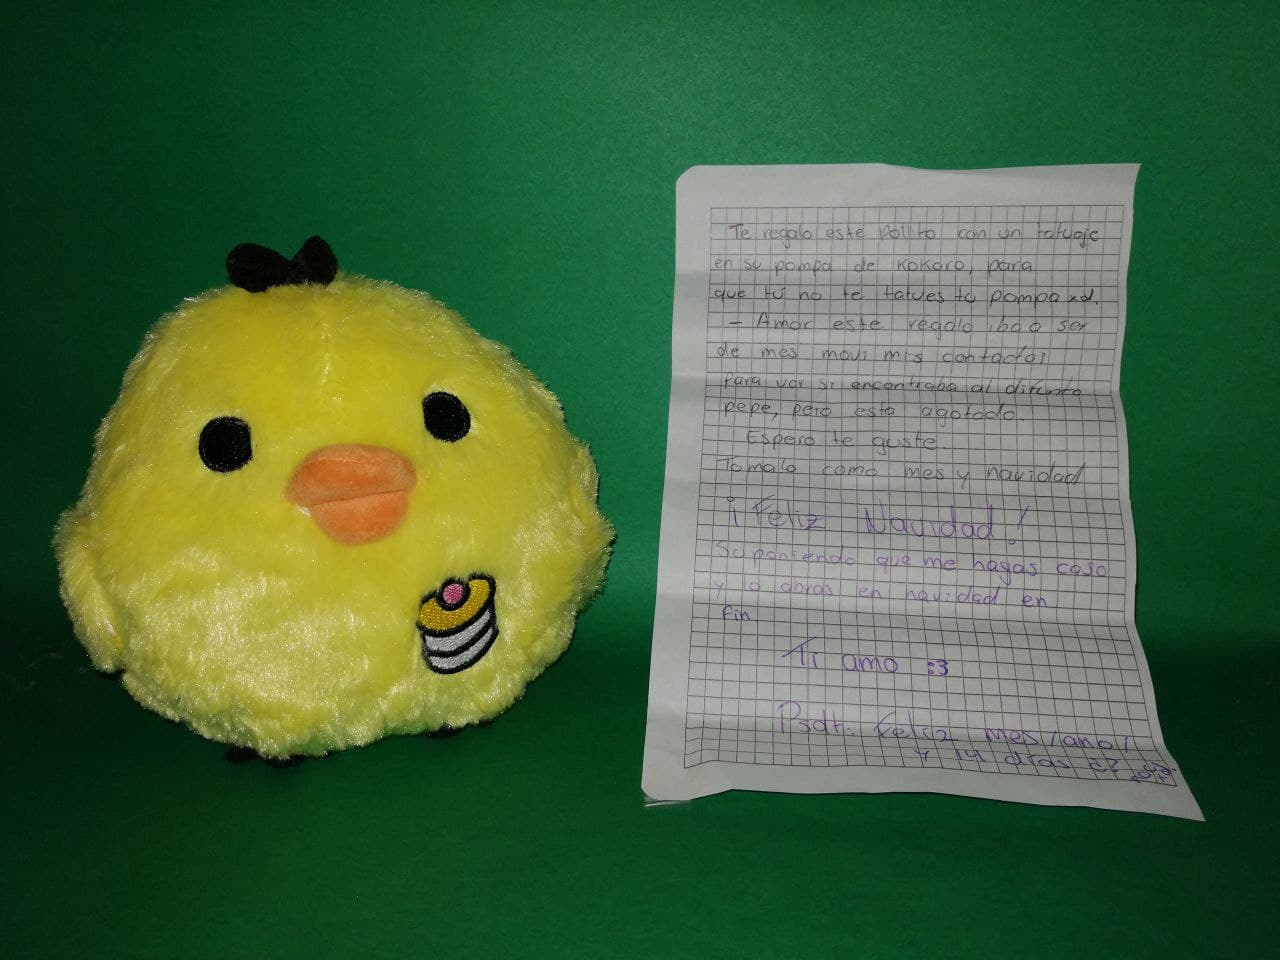 Te regalo este pollito con un tatuaje
en su pompa de Kokoro, para
que tú no te tatues tu pompa xd.
- Amor este regalo iba a ser
de mes moví mis contactos
para ver si encontraba al difunto
pepe, pero esta agotado.
Espero te guste
Tomalo como mes y navidad
¡Feliz Navidad!
Suponiendo que me hagas caso
y lo abras en navidad en
fin.
Ti amo :3
Psdt: Feliz mes/año/
y 14 dias